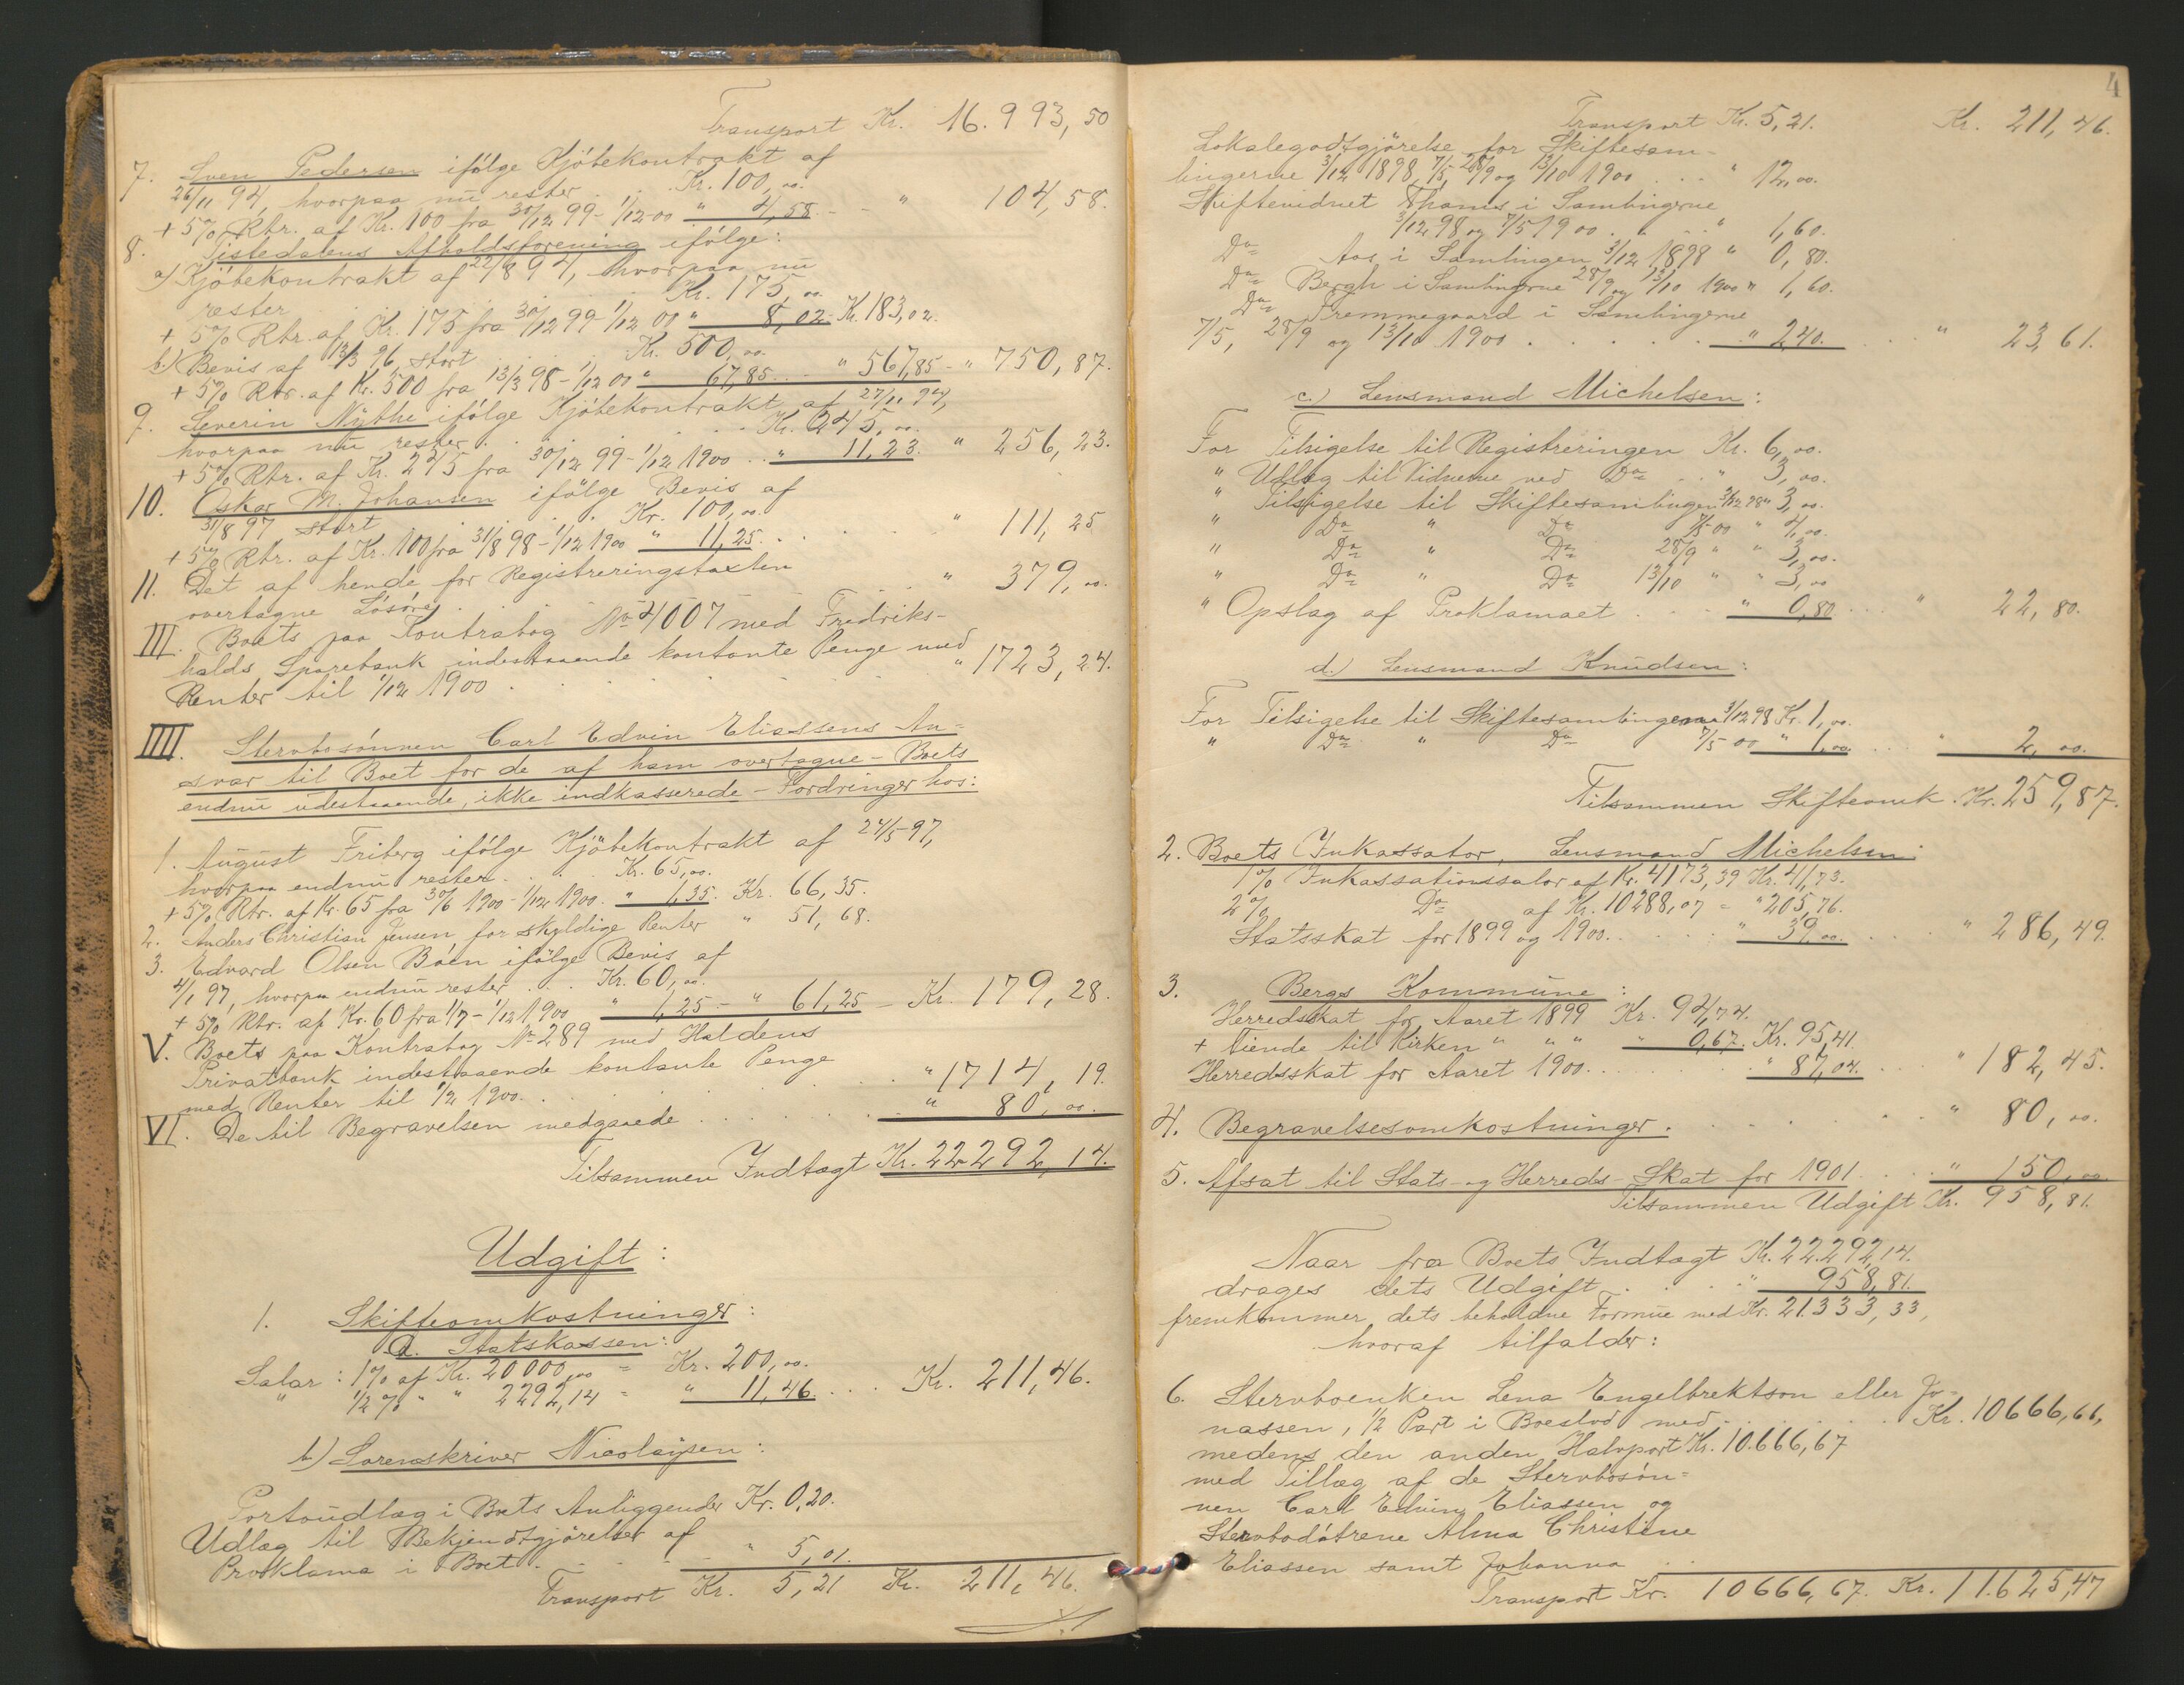 Transport Kr. 16.993,50
7. Sven Pedersen ifølge Kjøbekontrakt af
26/11 94, hvorpaa nu rester . . . Kr. 100,00.
+ 5% Rtr. af Kr. 100 fra 30/12 99 - 1/12 00 " 4,58 - - " 104,58.
8. Tistedalens Afholdsforening ifølge:
a) Kjøbekontrakt af 22/8 94, hvorpaa nu
rester . . . . . . Kr. 175,00.
+ 5% Rtr. af Kr. 175 fra 30/12 99 - 1/12 00 " 8,02 - Kr. 183,02.
b.) Bevis af 13/3 96 stort . . . Kr. 500,00.
+ 5% Rtr. af Kr. 500 fra 13/3 98 - 1/12 00 " 67,85 . . " 567,85 - " 750,87.
9. Severin Nythe ifølge Kjøbekontrakt af 27/11 94,
hvorpaa nu rester . . . . . . Kr. 245,00.
+ 5% Rtr. af Kr. 245 fra 30/12 99 - 1/12 1900 . . " 11,23. " 256,23.
10. Oskar M. Johansen ifølge Bevis af
31/8 97 stort . . . . . Kr. 100,00.
+ 5% Rtr. af Kr. 100 fra 31/8 98 - 1/12 1900 " 11,25. . . . . " 111,25
11. Det af hende for Registreringstaxten
overtagne Løsøre . . . . . . " 379,00.
III. Boets paa Kontrabog No 4007 med Fredriks-
halds Sparebank indestaaende kontante Penge med
Renter til 1/12 1900 . . . . . . " 1723,24.
IIII. Stervbosønnen Carl Edvin Eliassens An=
svar til Boet for de af ham overtagne - Boets
endnu udestaaende, ikke indkasserede - Fordringer hos:
1. August Friberg ifølge Kjøbekontrakt af 24/5 97,
hvorpaa endnu rester . . . Kr. 65,00.
+ 5% Rtr. af Kr. 65 fra 30/6 1900 - 1/12 1900. " 1,35. Kr. 66,35.
2. Anders Christian Jensen for skyldige Renter " 51,68.
3. Edvard Olsen Bøen ifølge Bevis af
4/1 97, hvorpaa endnu rester . . . Kr. 60,00.
+ 5% Rtr. af Kr. 60 fra 1/7 - 1/12 1900 " 1,25 - " 61,25 - Kr. 179,28.
V. Boets paa Kontrabog No 289 med Haldens
Privatbank indestaaende kontante Penge
med Renter til 1/12 1900. . . . . . " 1714,19.
VI. De til Begravelsen medgaaede . . . . . . " 80,00.
Tilsammen Indtægt Kr. 22292,14.
Udgift:
1. Skifteomkostninger:
a. Statskassen:
Salær: 1% af Kr. 20000,00 = Kr. 200,00.
" 1/2 % " " 2292,14 = " 11,46. . . Kr. 211,46.
b) Sorenskriver Nicolaysen:
Portoudlæg i Boets Anliggender Kr. 0,20.
Udlæg til Bekjendtgjørelser af
Proklama i Boet . . . . . " 5,01.
Transport Kr. 5,21 Kr. 211,46.
4
Transport Kr. 5,21. Kr. 211,46.
Lokalegodtgjørelse for Skiftesam-
lingerne 3/12 1898, 7/5, 28/9 og 13/10 1900 . . . " 12,00.
Skiftevidnet Thams i Samlingerne
3/12 98 og 7/5 1900 . . . " 1,60.
Do Aas i Samlingen 3/12 1898 " 0,80.
Do Bergh i Samlingerne 28/9 og 13/10 1900 " 1,60.
Do Fremmegaard i Samlingerne
7/5, 28/9 og 13/10 1900 . . . . . " 2,40. . . . " 23,61.
c.) Lensmand Michelsen:
For Tilsigelse til Registreringen Kr. 6,00.
" Udlæg til Vidnerne ved Do . . " 3,00.
" Tilsigelse til Skiftesamlingen 3/12 98 " 3,00.
" Do " Do 7/5 00 " 4,00.
" Do " Do 28/9 " " 3,00.
" Do " Do 13/10 " " 3,00
" Opslag af Proklamaet . . . " 0,80 . . . " 22,80.
d.) Lensmand Knudsen:
For Tilsigelse til Skiftesamlingerne 3/12 98 Kr. 1,00.
" Do " Do 7/5 00 " 1,00. . . " 2,00.
Tilsammen Skifteomk. Kr. 259,87.
2. Boets Inkassator, Lensmand Michelsen:
1% Inkassationssalær af Kr. 4173,39 Kr. 41,73.
2% Do af Kr. 10288,07 = " 205,76.
Statsskat for 1899 og 1900. . . . . " 39,00. . . . " 286,49.
3. Bergs Kommune:
Herredsskat for Aaret 1899 Kr. 94,74.
+ Tiende til Kirken " " " " 0,67. Kr. 95,41.
Herredsskat for Aaret 1900. . . . . " 87,04. . . . " 182,45.
4. Begravelsesomkostninger. . . . . " 80,00.
5. Afsat til Stats- og Herreds-Skat for 1901 . . . " 150,00
Tilsammen Udgift Kr. 958,81.
Naar fra Boets Indtægt Kr. 22.292,14.
drages dets Udgift . . . . " 958,81.
fremkommer dets beholdne Formue med Kr. 21.333,33,
hvoraf tilfalder:
6. Stervboenken Lena Engelbrektson eller Jo-
nassen, 1/2 Part i Boeslod med . . . . . Kr. 10666,66,
medens den anden Halvpart Kr. 10.666,67
med Tillæg af de Stervbosøn=
nen Carl Edvin Eliassen og
Stervbodøtrene Alma Christine
Eliassen samt Johanna . .
Transport Kr. 10666,67. Kr. 11.625,47